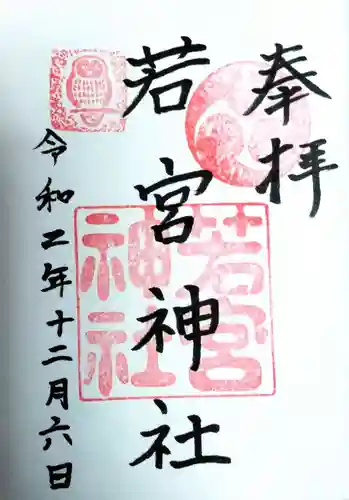 奉拝
若宮神社
若宮
神社
令和二年十二月六日